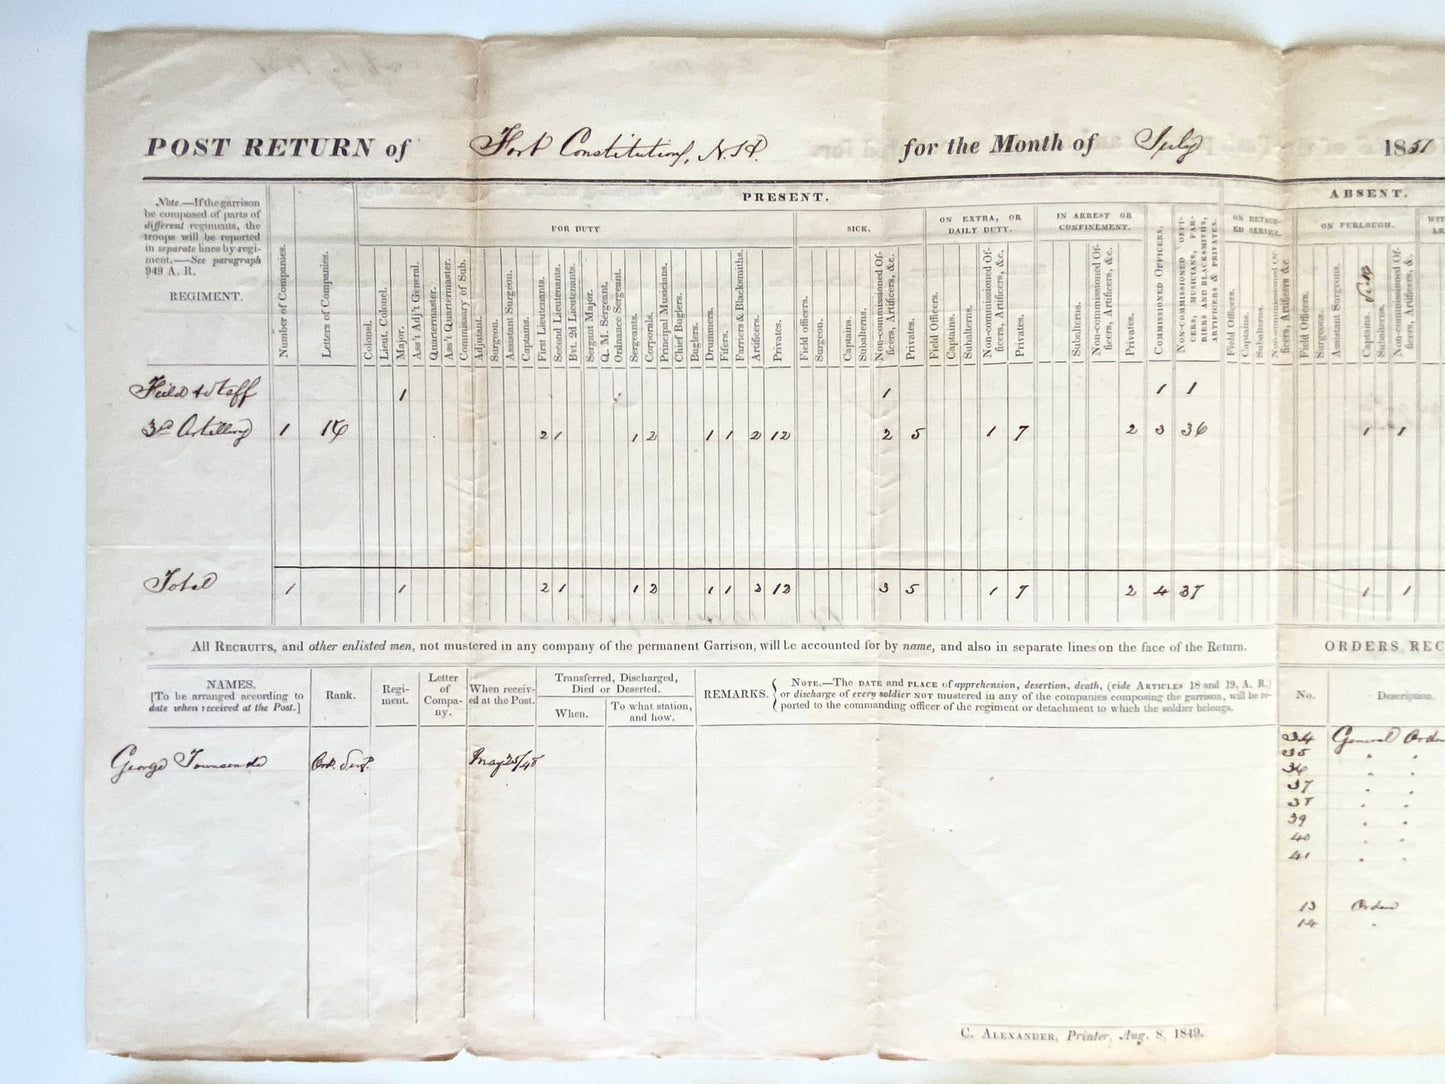 POST RETURN of Fort Constitution, N.H. for the Month of July 1851
Note.—If the garrison
be composed of parts of
different regiments, the
troops will be reported
in separate lines by regi-
ment.—See paragraph
949 A. R.
REGIMENT.
Number of Companies.
Letters of Companies.
PRESENT.
FOR DUTY
Colonel.
Lieut. Colonel.
Major.
Ass't Adj't General.
Quartermaster.
Ass't Quartermaster.
Commissary of Sub.
Adjutant.
Surgeon.
Assistant Surgeon.
Captains.
First Lieutenants.
Second Lieutenants.
Bvt. 2d Lieutenants.
Sergeant Major.
Q. M. Sergeant.
Ordnance Sergeant.
Sergeants.
Corporals.
Principal Musicians.
Chief Buglers.
Buglers.
Drummers.
Fifers.
Farriers & Blacksmiths.
Artificers.
Privates.
SICK.
Field officers.
Surgeon.
Captains.
Subalterns.
Non-commissioned Of-
ficers, Artificers, &c.
Privates.
ON EXTRA, OR
DAILY DUTY.
Field Officers.
Captains.
Subalterns.
Non-commissioned Of-
ficers, Artificers, &c.
Privates.
IN ARREST OR
CONFINEMENT.
Subalterns.
Non-commissioned Of-
ficers, Artificers, &c.
Privates.
COMMISSIONED OFFICERS.
NON-COMMISSIONED OFFI-
CERS, MUSICIANS, FAR-
RIERS AND BLACKSMITHS,
ARTIFICERS & PRIVATES.
ABSENT.
ON DETACH-
ED SERVICE.
Field Officers.
Captains.
Subalterns.
Non-commissioned Of-
ficers, Artificers &c.
ON FURLOUGH.
Field Officers.
Surgeons.
Assistant Surgeons.
Captains.
Subalterns.
Non-commissioned Of-
ficers, Artificers, &c.
Field & Staff 1 1 1 1
3d Artillery 1 2 1 1 2 1 1 2 12 2 5 1 7 2 3 36 1 1
Total 1 1 2 1 1 2 1 1 2 12 3 5 1 7 2 4 37 1 1
All RECRUITS, and other enlisted men, not mustered in any company of the permanent Garrison, will be accounted for by name, and also in separate lines on the face of the Return.
ORDERS REC
NAMES.
[To be arranged according to
date when received at the Post.]
Rank.
Regi-
ment.
Letter
of
Compa-
ny.
When receiv-
ed at the Post.
Transferred, Discharged,
Died or Deserted.
When.
To what station,
and how.
REMARKS.
NOTE.—The DATE and PLACE of apprehension, desertion, death, (vide ARTICLES 18 and 19, A. R.)
or discharge of every soldier NOT mustered in any of the companies composing the garrison, will be re-
ported to the commanding officer of the regiment or detachment to which the soldier belongs.
No.
Description.
George Townsend Ord. Sergt. May 25/48
34 General Orders
35 " "
36 " "
37 " "
38 " "
39 " "
40 " "
41 " "
13 Orders
14 "
C. ALEXANDER, Printer, Aug. 8, 1849.